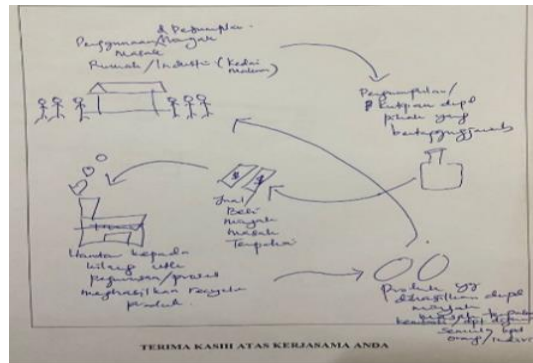 & Pengumpulan
Penggunaan Minyak
Masak
Rumah/Industri (Kedai
Makan)
Pengumpulan/
Kutipan drpd
pihak yang
bertanggungjawab
Jual
Beli
minyak
masak
Terpakai
Hantar kepada
kilang utk
proses
menghasilkan
produk.
Produk yg
dihasilkan drpd
minyak
TERIMA KASIH ATAS KERJASAMA ANDA